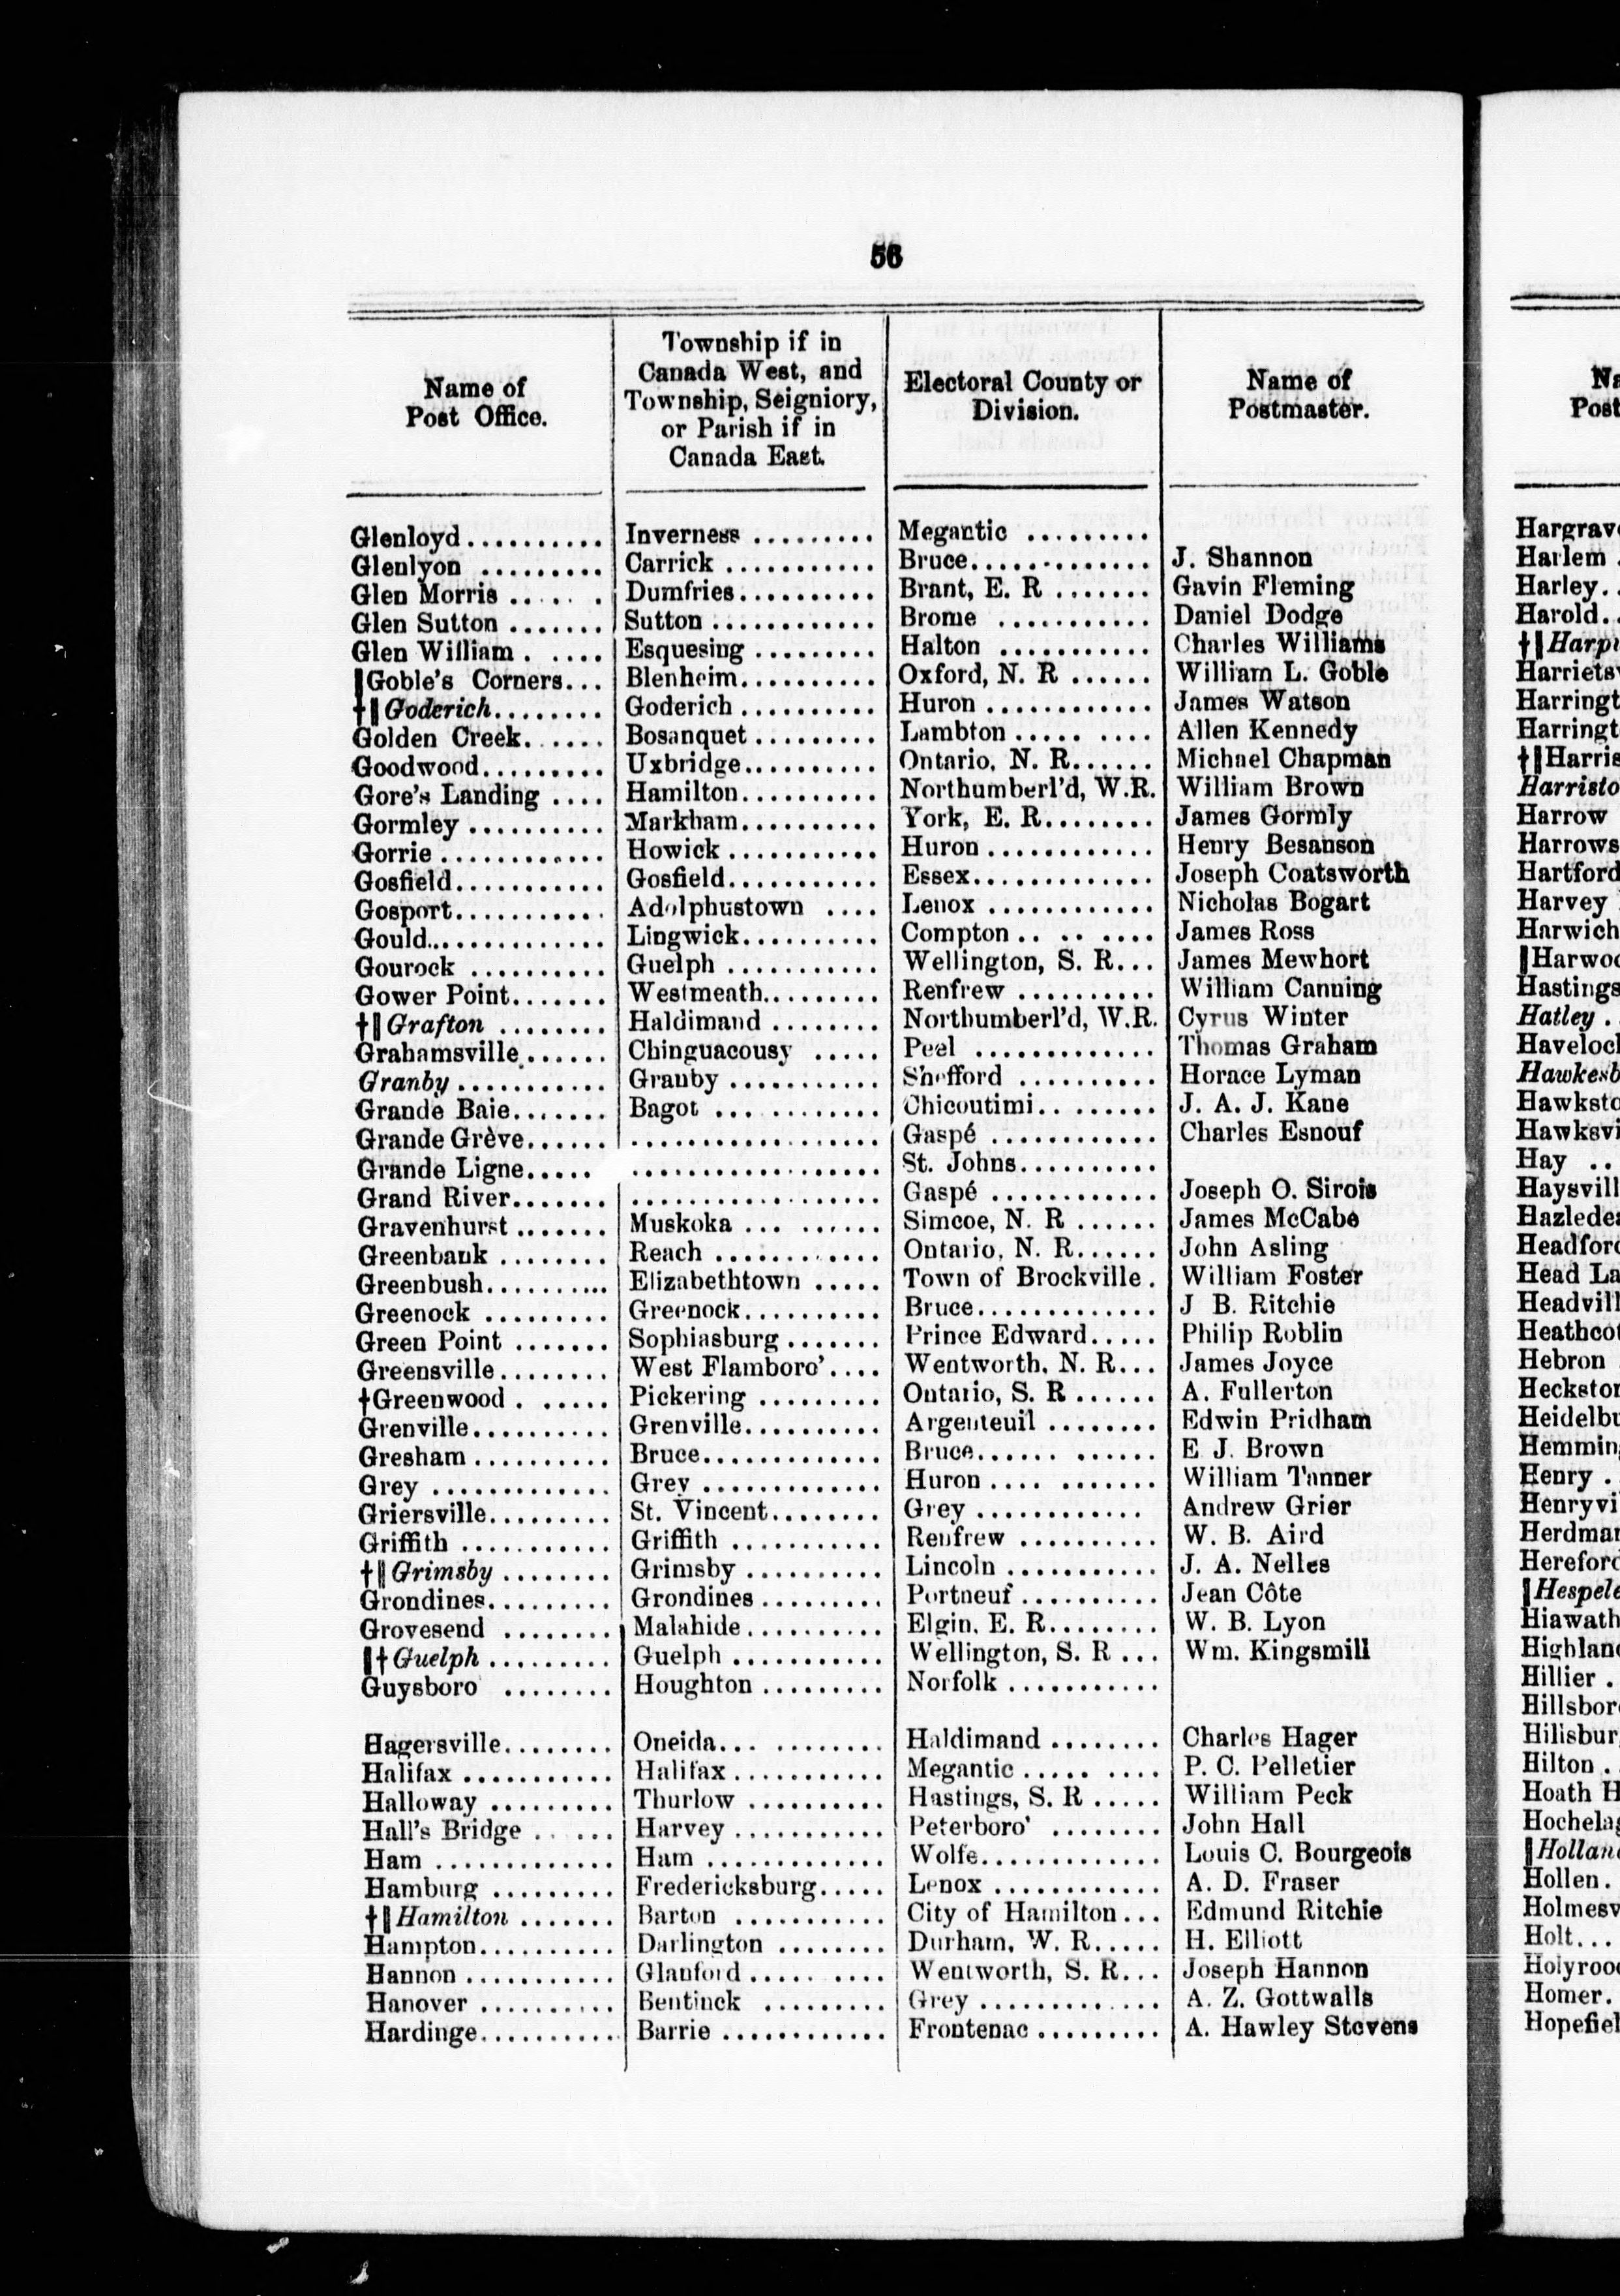 56
Name of Post Office. | Township if in Canada West, and Township, Seigniory, or Parish if in Canada East. | Electoral County or Division. | Name of Postmaster.
Glenloyd.......... | Inverness ......... | Megantic .........
Glenlyon ......... | Carrick ........... | Bruce............. | J. Shannon
Glen Morris ...... | Dumfries.......... | Brant, E. R ....... | Gavin Fleming
Glen Sutton ....... | Sutton ............ | Brome ........... | Daniel Dodge
Glen William . .... | Esquesing ......... | Halton ........... | Charles Williams
‖Goble's Corners... | Blenheim.......... | Oxford, N. R ...... | William L. Goble
†‖Goderich........ | Goderich .......... | Huron ............ | James Watson
Golden Creek...... | Bosanquet ......... | Lambton ..... .... | Allen Kennedy
Goodwood......... | Uxbridge.......... | Ontario, N. R...... | Michael Chapman
Gore's Landing .... | Hamilton.......... | Northumberl'd, W.R. | William Brown
Gormley .......... | Markham.......... | York, E. R........ | James Gormly
Gorrie ............ | Howick ........... | Huron ............ | Henry Besanson
Gosfield........... | Gosfield........... | Essex............. | Joseph Coatsworth
Gosport........... | Adolphustown .... | Lenox ............ | Nicholas Bogart
Gould............. | Lingwick.......... | Compton .. .. .... | James Ross
Gourock .......... | Guelph ........... | Wellington, S. R... | James Mewhort
Gower Point....... | Westmeath........ | Renfrew .......... | William Canning
†‖Grafton ........ | Haldimand ........ | Northumberl'd, W.R. | Cyrus Winter
Grahamsville...... | Chinguacousy ..... | Peel ............. | Thomas Graham
Granby ........... | Granby ........... | Shefford .......... | Horace Lyman
Grande Baie....... | Bagot ... ......... | Chicoutimi......... | J. A. J. Kane
Grande Grève...... | .................. | Gaspé ............ | Charles Esnouf
Grande Ligne..... | .................. | St. Johns..........
Grand River....... | .................. | Gaspé ............ | Joseph O. Sirois
Gravenhurst ....... | Muskoka ... ...... | Simcoe, N. R ...... | James McCabe
Greenbank ........ | Reach ............ | Ontario, N. R...... | John Asling
Greenbush.......... | Elizabethtown ..... | Town of Brockville . | William Foster
Greenock ......... | Greenock.......... | Bruce............. | J B. Ritchie
Green Point ....... | Sophiasburg ....... | Prince Edward..... | Philip Roblin
Greensville........ | West Flamboro'.... | Wentworth, N. R... | James Joyce
†Greenwood . ..... | Pickering ......... | Ontario, S. R ...... | A. Fullerton
Grenville.......... | Grenville.......... | Argenteuil ........ | Edwin Pridham
Gresham .......... | Bruce............. | Bruce...... ...... | E J. Brown
Grey ............. | Grey ............. | Huron .... ....... | William Tanner
Griersville......... | St. Vincent........ | Grey ............ | Andrew Grier
Griffith ........... | Griffith ........... | Renfrew .......... | W. B. Aird
†‖Grimsby ........ | Grimsby .......... | Lincoln ........... | J. A. Nelles
Grondines......... | Grondines ......... | Portneuf .......... | Jean Côte
Grovesend ........ | Malahide.......... | Elgin, E. R........ | W. B. Lyon
‖†Guelph ......... | Guelph ........... | Wellington, S. R ... | Wm. Kingsmill
Guysboro ........ | Houghton ......... | Norfolk ...........
Hagersville........ | Oneida... ........ | Haldimand ........ | Charles Hager
Halifax ........... | Halifax ........... | Megantic ..... .... | P. C. Pelletier
Halloway ......... | Thurlow .......... | Hastings, S. R ..... | William Peck
Hall's Bridge ...... | Harvey ........... | Peterboro' ........ | John Hall
Ham ............. | Ham ............. | Wolfe............. | Louis C. Bourgeois
Hamburg ......... | Fredericksburg..... | Lenox ............ | A. D. Fraser
†‖Hamilton ....... | Barton ........... | City of Hamilton... | Edmund Ritchie
Hampton.......... | Darlington ........ | Durham, W. R..... | H. Elliott
Hannon ........... | Glanford ..... .... | Wentworth, S. R... | Joseph Hannon
Hanover .......... | Bentinck ......... | Grey ............. | A. Z. Gottwalls
Hardinge.......... | Barrie ............ | Frontenac ......... | A. Hawley Stevens
Harlem
Harley
Harold
Harrow
Hatley
Hay
Hebron
Henry
Hillier
Hilton
Hollen.
Holt...
Homer.